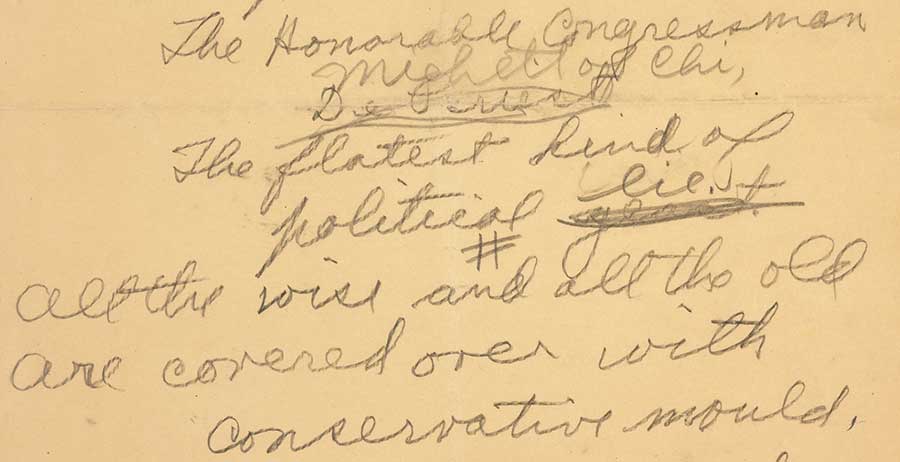 The Honorable Congressman
Mighell of Chi,
De Priest
The flatest kind of
political lie.
#
All the wise and all the old
Are covered over with
conservative mould.